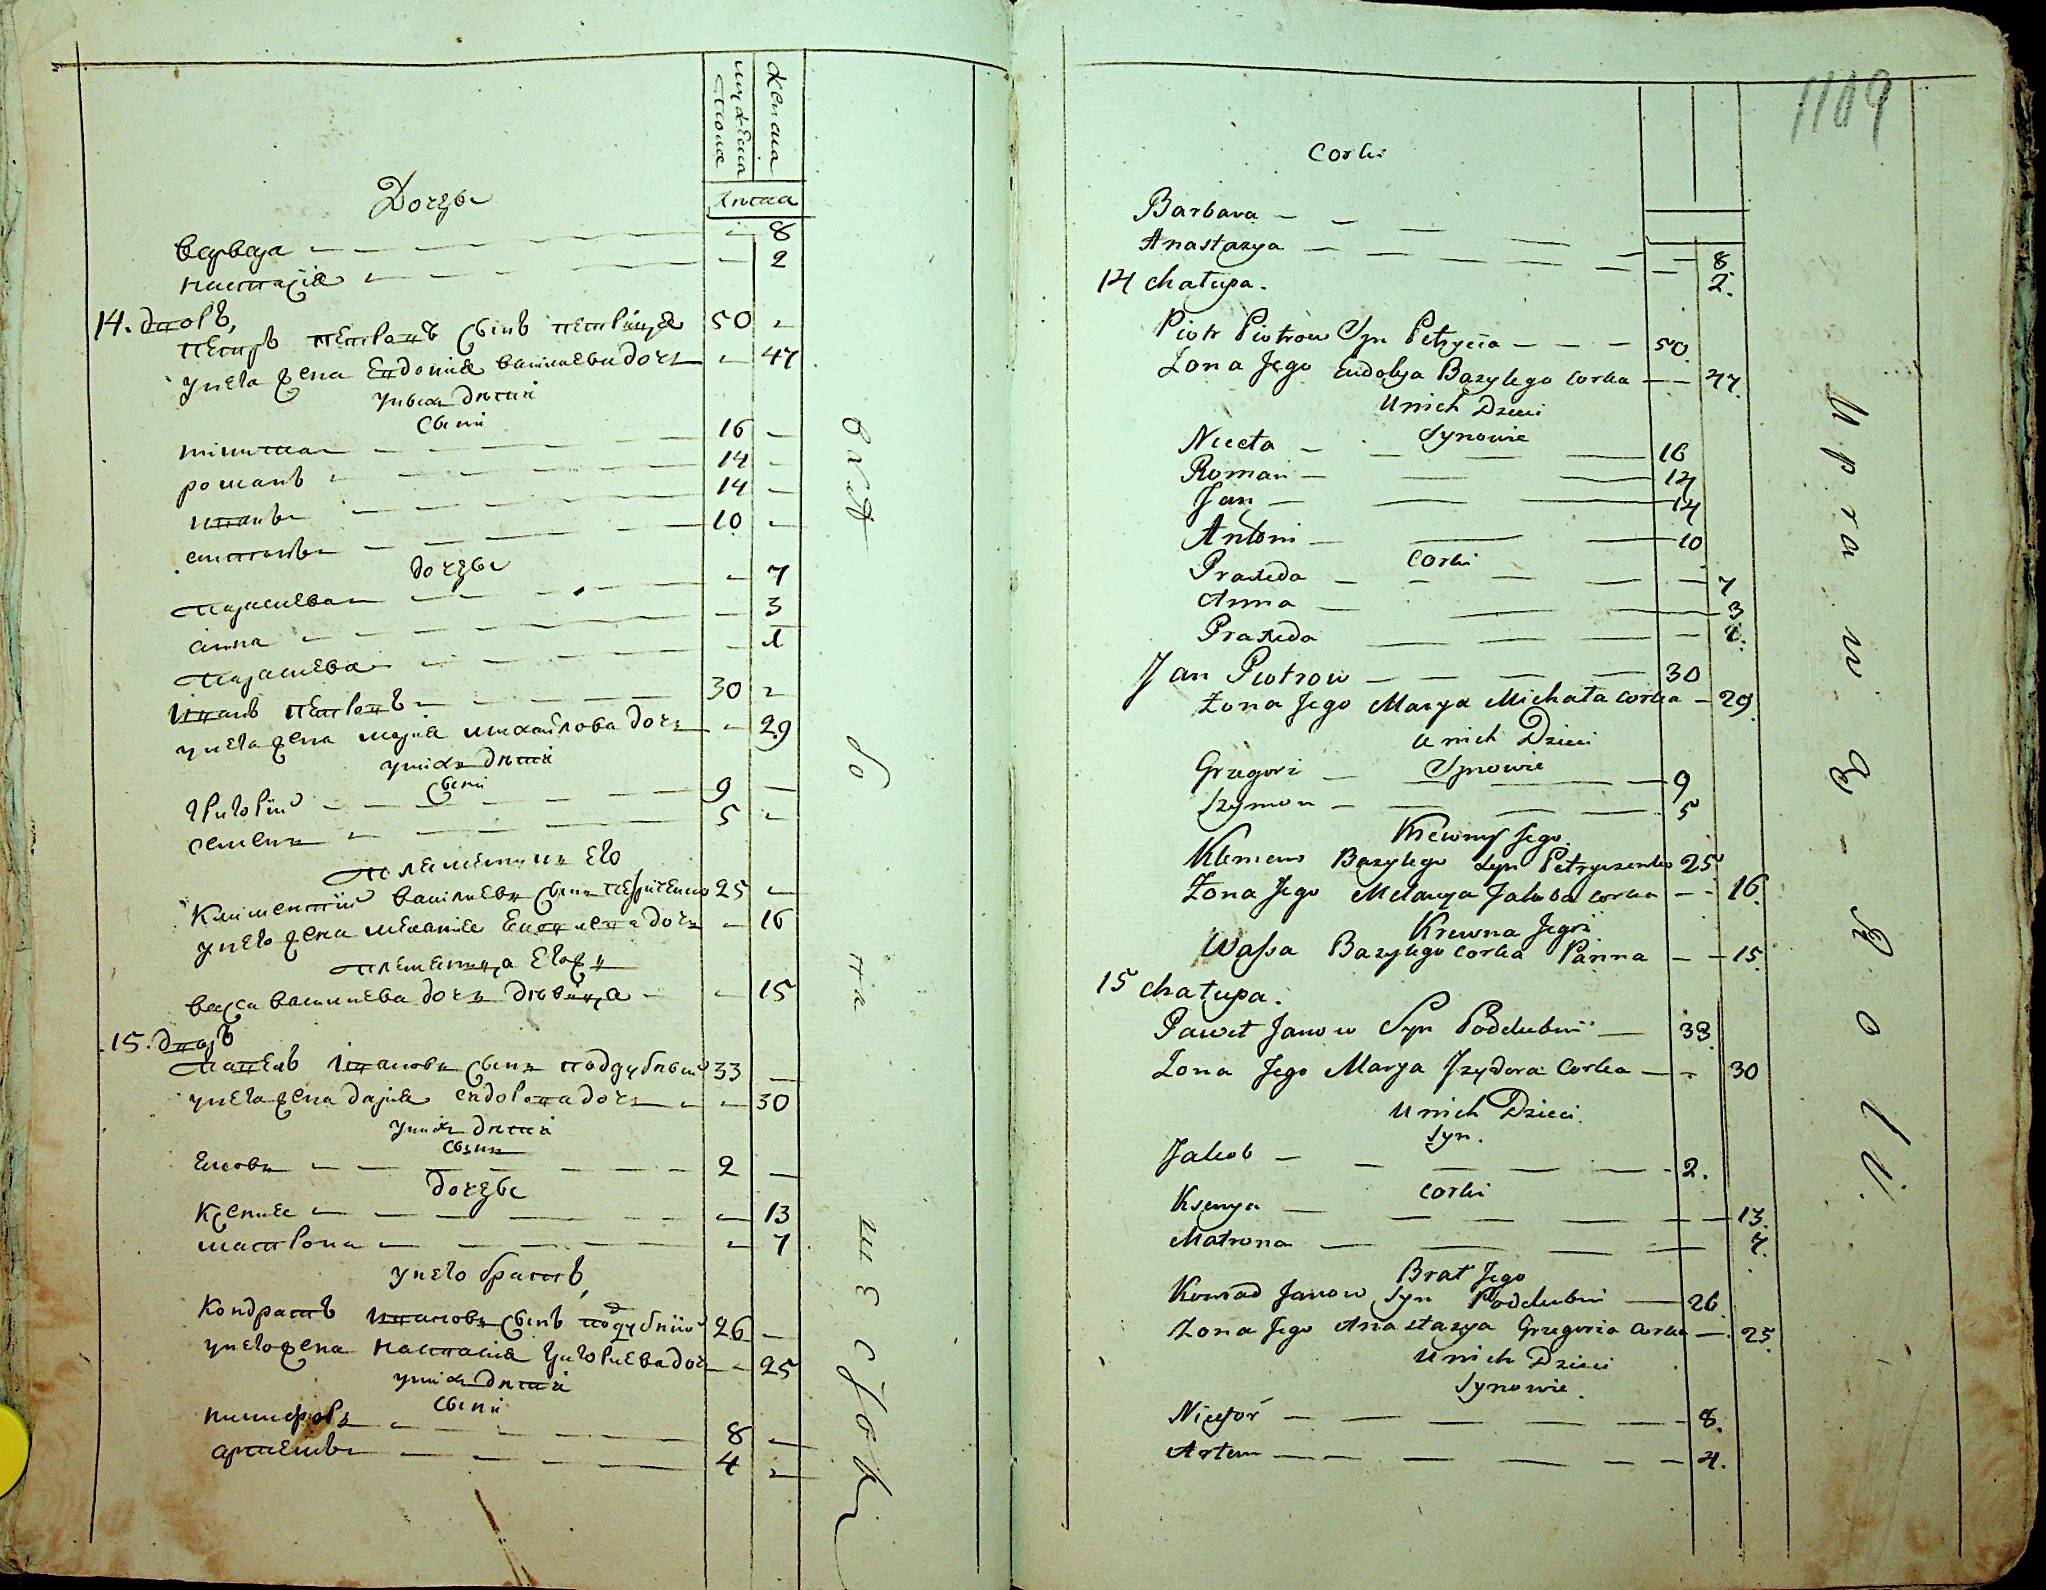 мужеска
пола
женска
лѣта
Дочери
варвара — 8
настасія — 2
14. дворъ,
петръ петровъ сынъ петрица 50
у него жена евдокія васильева дочь 47
у ныхъ дѣти
сыни
никита 16
романъ 14
иванъ 14
антонъ 10
дочери
парасцева 7
анна 3
парасцева 1
Иванъ петровъ 30
у него жена марія михайлова дочь 29
у нихъ дѣти
сыни
григорій 9
семенъ 5
племянникъ его
Климентій васильевъ сынъ 25
у него жена меланія дочь 16
племяница его
васса васильева дочь дѣвица 15
15. дворъ
Павелъ Ивановъ сынъ поддубный 33
у него жена дочь 30
у нихъ дѣти
сынъ
Яковъ 2
дочери
Ксенія 13
матрона 7
у него братъ,
Кондратъ ивановъ сынъ подубній 26
у него жена настасія григориева дочь 25
у нихъ дѣти
сыни
никифоръ 8
артемъ 4
1109
Corki
Barbara — 8
Anastazya — 2.
14 chałupa.
Piotr Piotrow Syn Petryca — 50.
Zona Jego Eudokya Bazylego corka — 47.
U nich Dzieci
Synowie
Niceta — 16
Roman — 14
Jan — 14
Antoni — 10
Corki
Praxeda — 7
Anna — 3
Praxeda — 1.
Jan Piotrow — 30
Zona Jego Marya Michała corka — 29.
U nich Dzieci
Synowie
Grzegorz — 9
Szymon — 5
Krewny Jego.
Klemens Bazylego Syn Petryczenko 25
Zona Jego Melanya Jakoba corka — 16.
Krewna Jego
Wassa Bazylego corka Panna — 15.
15 chałupa.
Paweł Janow Syn Poddubni — 33.
Zona Jego Marya Jzydora Corka — 30
U nich Dzieci.
Syn.
Jakob — 2.
Corki
Ksenya — 13.
Matrona — 7.
Brat Jego
Konrad Janow Syn Poddubni — 26.
Zona Jego Anastazya Grzegorza Corka — 25.
U nich Dzieci
Synowie.
Nicefor — 8.
Artem — 4.